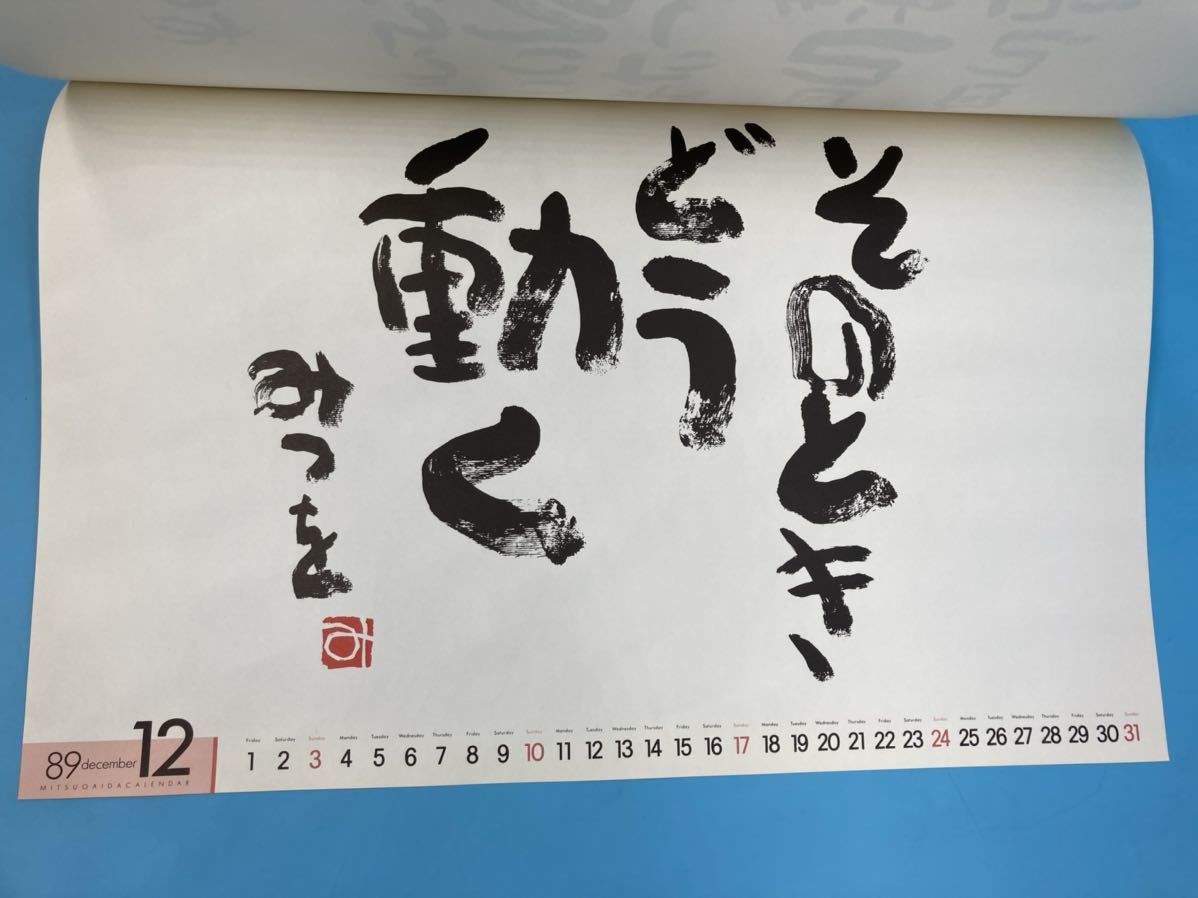 そのとき
どう
動く
みつを
み
89 december 12
MITSUO AIDA CALENDAR
Friday Saturday Sunday Monday Tuesday Wednesday Thursday Friday Saturday Sunday Monday Tuesday Wednesday Thursday Friday Saturday Sunday Monday Tuesday Wednesday Thursday Friday Saturday Sunday Monday Tuesday Wednesday Thursday Friday Saturday Sunday
1 2 3 4 5 6 7 8 9 10 11 12 13 14 15 16 17 18 19 20 21 22 23 24 25 26 27 28 29 30 31